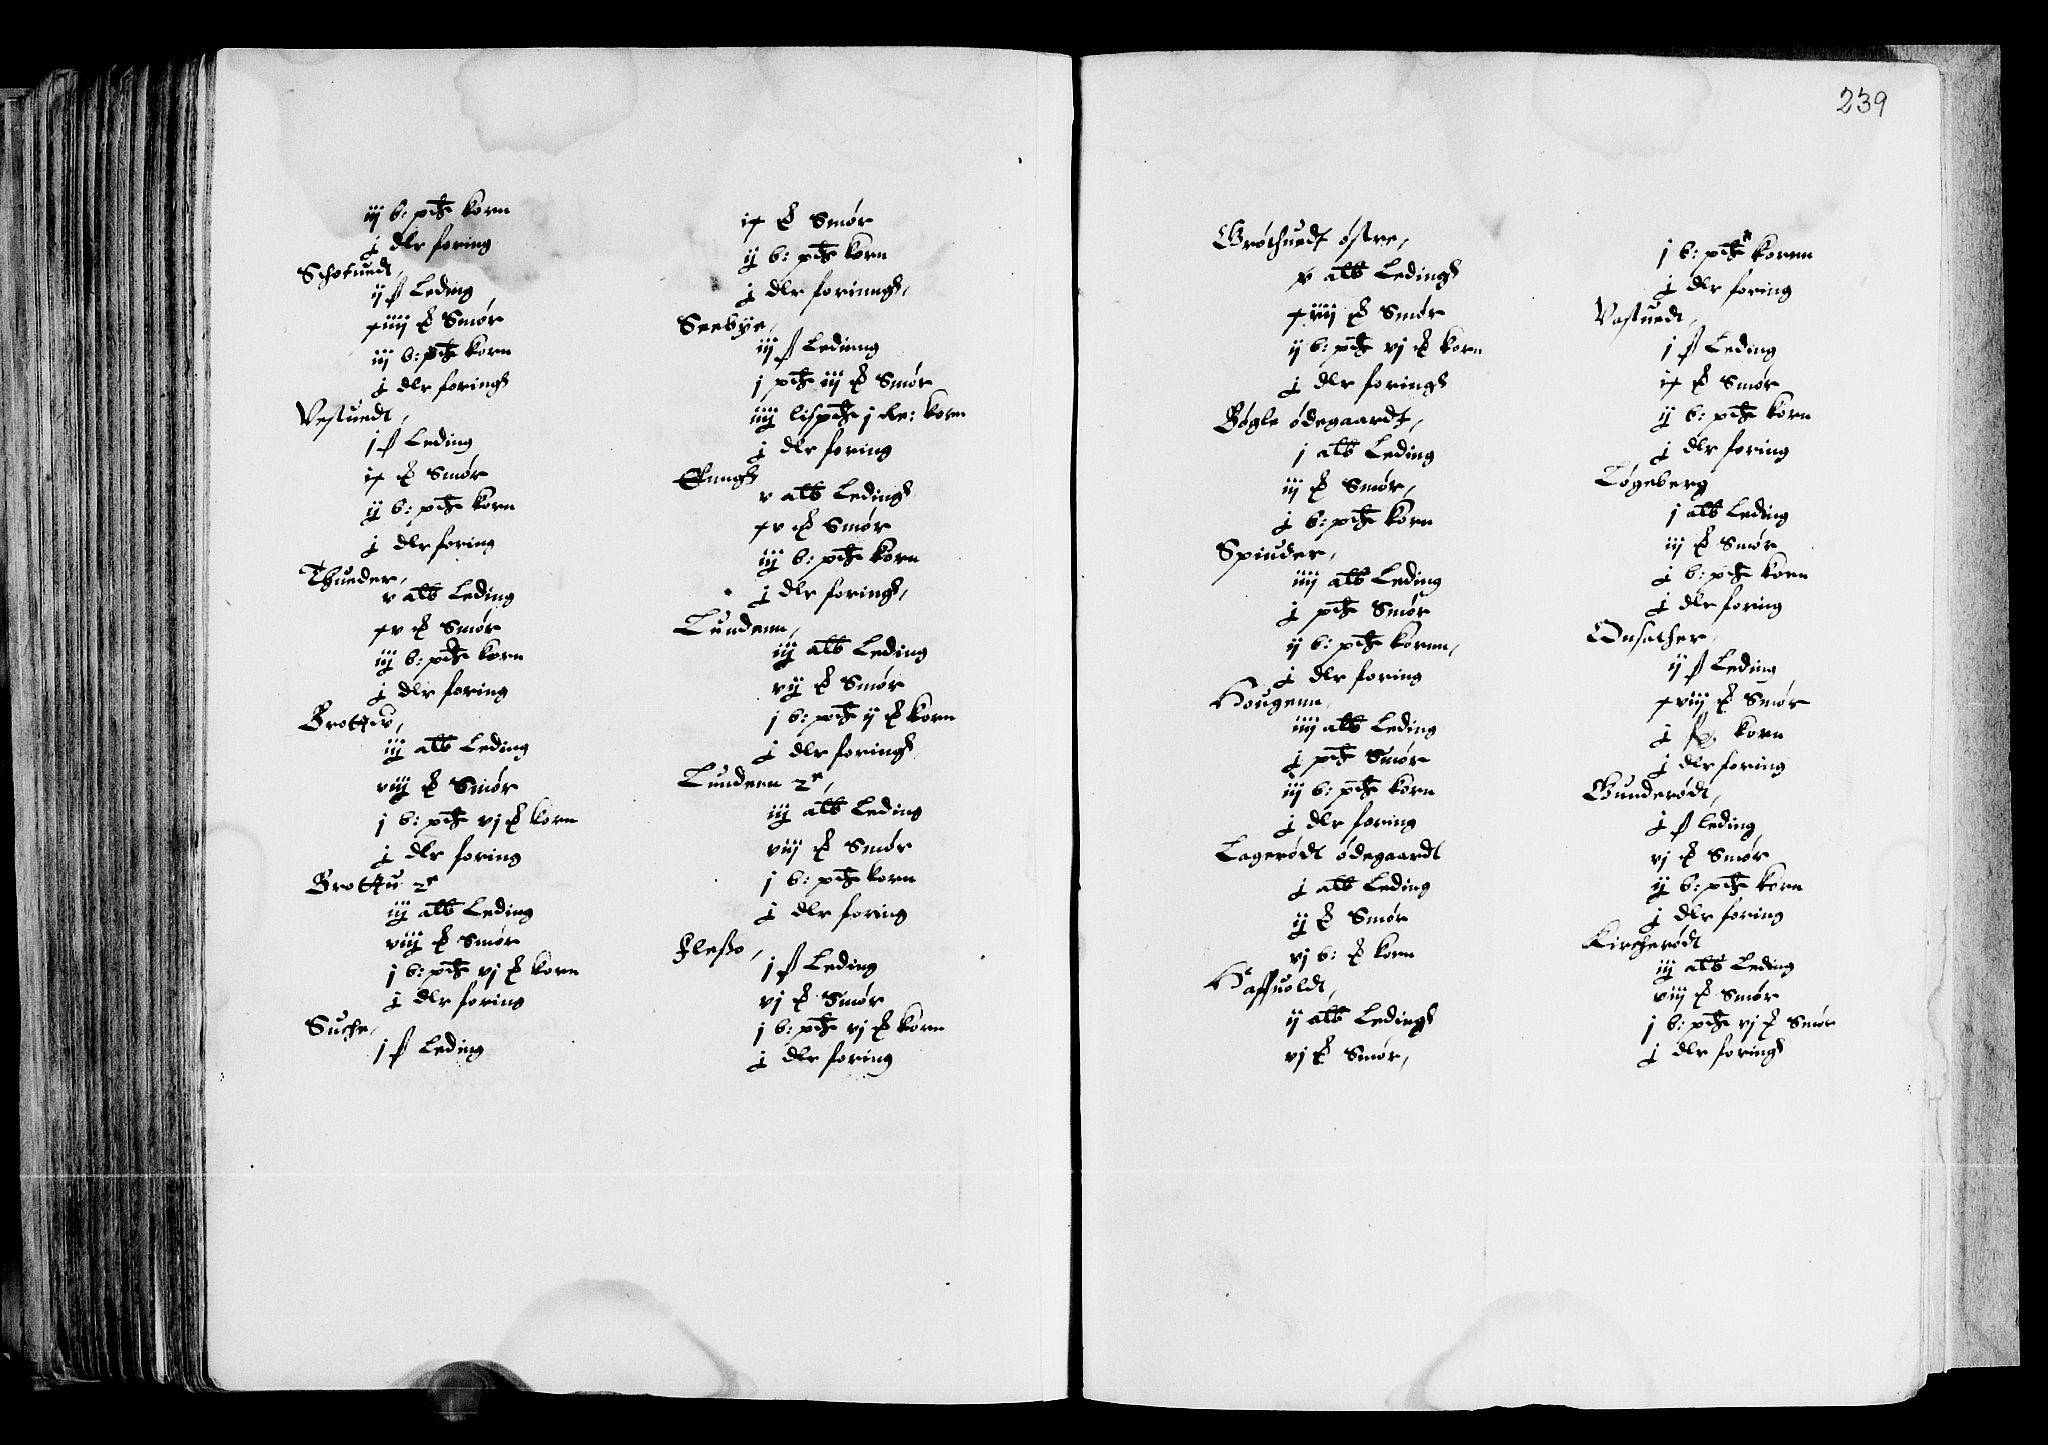 iij b: pd korn
j dlr foring
Schotuedt,
ij ß Leding
xiiij ℔ Smør
iij b: pd korn
j dlr foring
Vestuedt,
j ß Leding
ix ℔ Smør
ij b: pd korn
j dlr foring
Thueder,
v alb Leding
xv ℔ Smør
iij b: pd korn
j dlr foring
iij alb Leding
viij ℔ Smør
j b: pd vj ℔ korn
j dlr foring
iij alb Leding
viij ℔ Smør
j b: pd vj ℔ korn
j dlr foring
Suche,
j ß Leding
ix ℔ Smør
ij b: pd korn
j dlr foringh,
Seebye,
iij ß Leding
j pd iij ℔ Smør
iiij lispd j korn
j dlr foring
Enngh
v alb Leding
xv ℔ Smør
iij b: pd korn
j dlr foring,
Lundenn,
iij alb Leding
vij ℔ Smør
j b: pd ij ℔ korn
j dlr foring
Lundenn 2ᵉ,
iij alb Leding
viij ℔ Smør
j b: pd korn
j dlr foring
Fleßo,
j ß Leding
vj ℔ Smør
j b: pd vj ℔ korn
j dlr foring
239
Grøthuedt østre,
v alb Leding
xviij ℔ Smør
ij b: pd vj ℔ korn
j dlr foring
Bøgle ødegaardt,
j alb Leding
iij ℔ Smør,
j b: pd korn
Spinder,
iiij alb Leding
j pd Smør
ij b: pd kornn,
j dlr foring
Hougenn,
iiij alb Leding
j pd Smør
iij b: pd korn
j dlr foring
Lagerødt ødegaardt
j alb Leding
ij ℔ Smør
vj b: ℔ korn
Haffuoldt,
ij alb Leding
vj ℔ Smør,
j b: pd kornn
j dlr foring
Vastuedt,
j ß Leding
ix ℔ Smør
ij b: pd korn
j dlr foring
Løgeberg
j alb Leding
iij ℔ Smør
j b: pd korn
j dlr foring
Onsather,
ij ß Leding
xviij ℔ Smør
j korn
j dlr foring
Gunderødt,
j ß leding,
vj ℔ Smør
ij b: pd korn
j dlr foring
Kircherødt
iij alb Leding
viij ℔ Smør
j b: pd vj ℔ Smør
j dlr foring